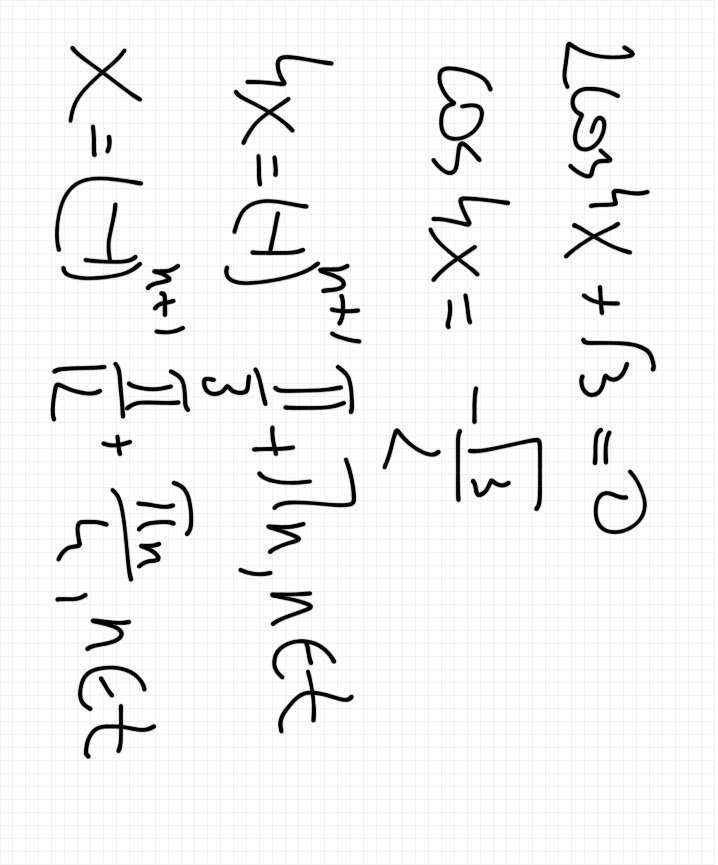 2cos4x + √3 = 0
cos4x = -√3/2
4x = (-1)^(n+1) π/3 + πn, n∈Z
x = (-1)^(n+1) π/12 + πn/4, n∈Z